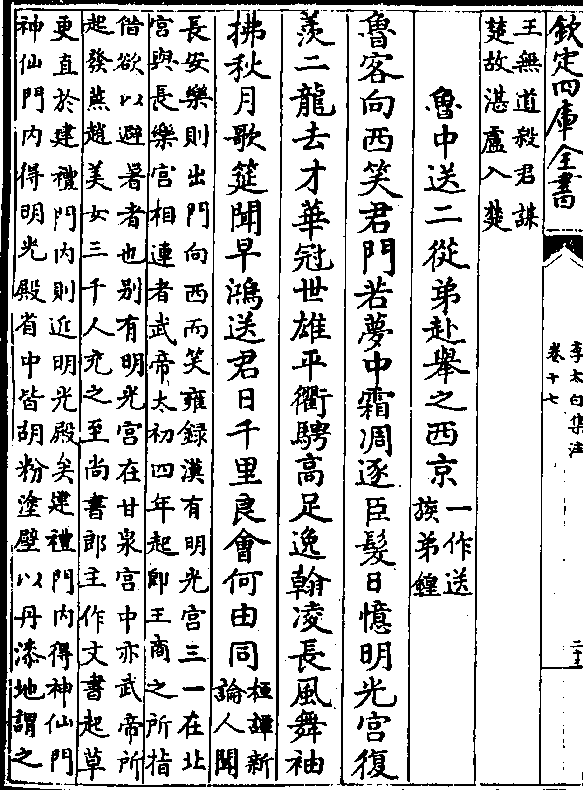 欽定四庫全書
李太白集注
卷十七
二十
王無道殺君謀
楚故湛盧入楚
魯中送二從弟赴舉之西京
一作送
族弟鍠
魯客向西笑君門若夢中霜凋逐臣髮日憶明光宮復
羨二龍去才華冠世雄平衢騁高足逸翰凌長風舞袖
拂秋月歌筵聞早鴻送君日千里良會何由同
桓譚新
論人聞
長安樂則出門向西而笑雍録漢有明光宮三一在北
宮與長樂宮相連者武帝太初四年起即王商之所指
借欲以避暑者也别有明光宮在甘泉宮中亦武帝所
起發燕趙美女三千人充之至尚書郎主作文書起草
更直於建禮門内則近明光殿矣建禮門内得神仙門
神仙門内得明光殿省中皆胡粉塗壁以丹漆地謂之